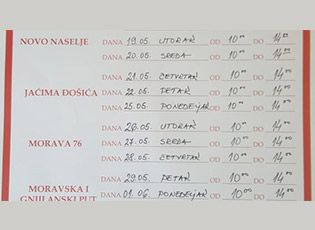 NOVO NASELJE DANA 19.05. UTORAK OD 10⁰⁰ DO 14⁰⁰
DANA 20.05. SREDA OD 10⁰⁰ DO 14⁰⁰
DANA 21.05. ČETVRTAK OD 10⁰⁰ DO 14⁰⁰
JAĆIMA ĐOŠIĆA DANA 22.05. PETAK OD 10⁰⁰ DO 14⁰⁰
DANA 25.05. PONEDELJAK OD 10⁰⁰ DO 14⁰⁰
DANA 26.05. UTORAK OD 10⁰⁰ DO 14⁰⁰
MORAVA 76 DANA 27.05. SREDA OD 10⁰⁰ DO 14⁰⁰
DANA 28.05. ČETVRTAK OD 10⁰⁰ DO 14⁰⁰
DANA 29.05. PETAK OD 10⁰⁰ DO 14⁰⁰
MORAVSKA I DANA 01.06. PONEDELJAK OD 10⁰⁰ DO 14⁰⁰
GNJILANSKI PUT